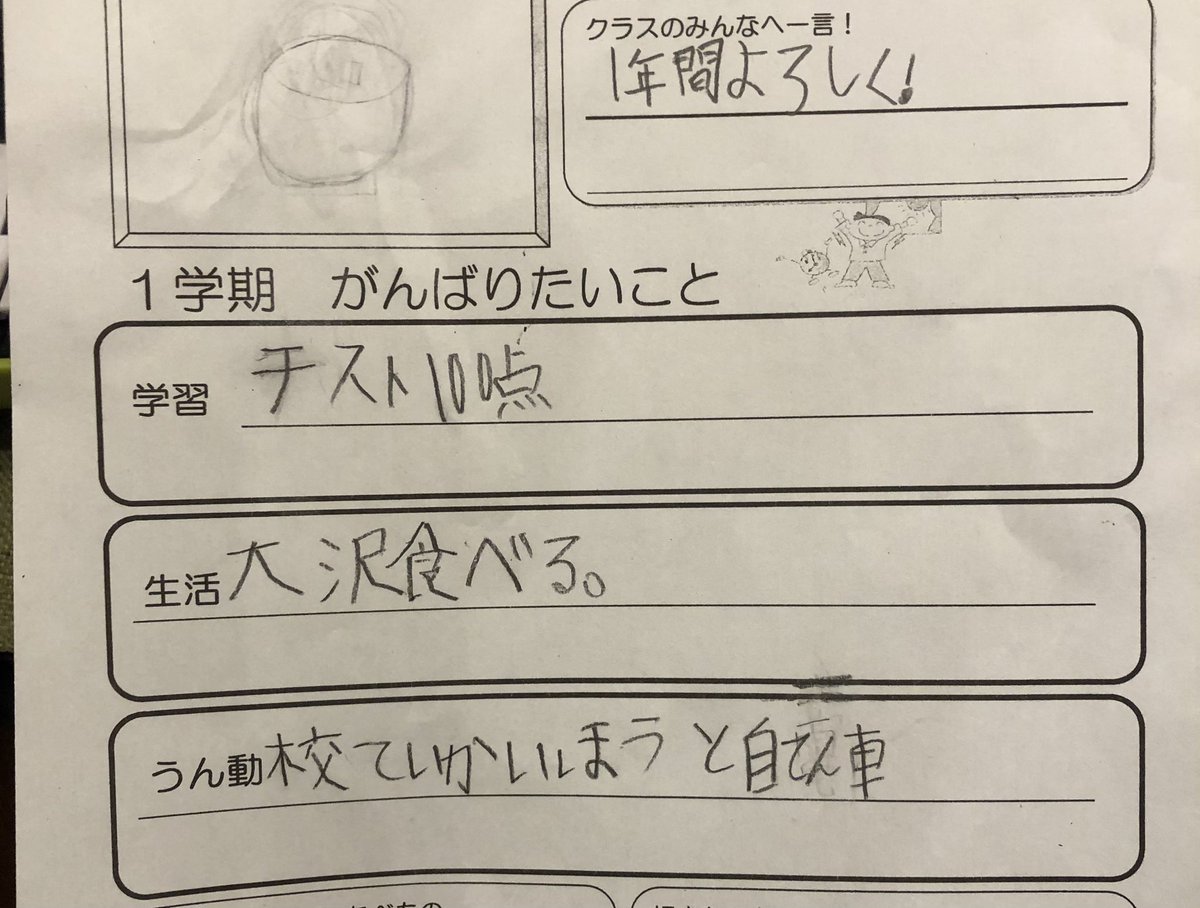 クラスのみんなへ一言！
1年間よろしく!
1学期　がんばりたいこと
学習　テスト100点
生活　大沢食べる。
うん動　校ていかいほうと自てん車